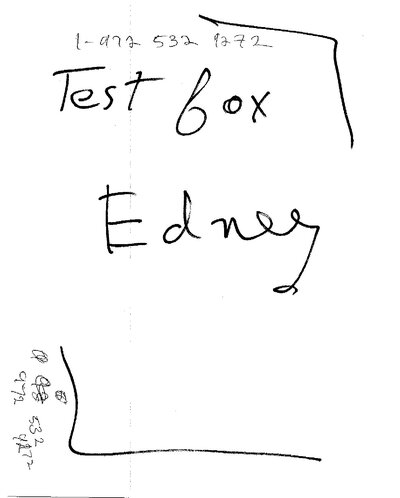 1-972 532 9272
Test box
Edney
972 532
9272